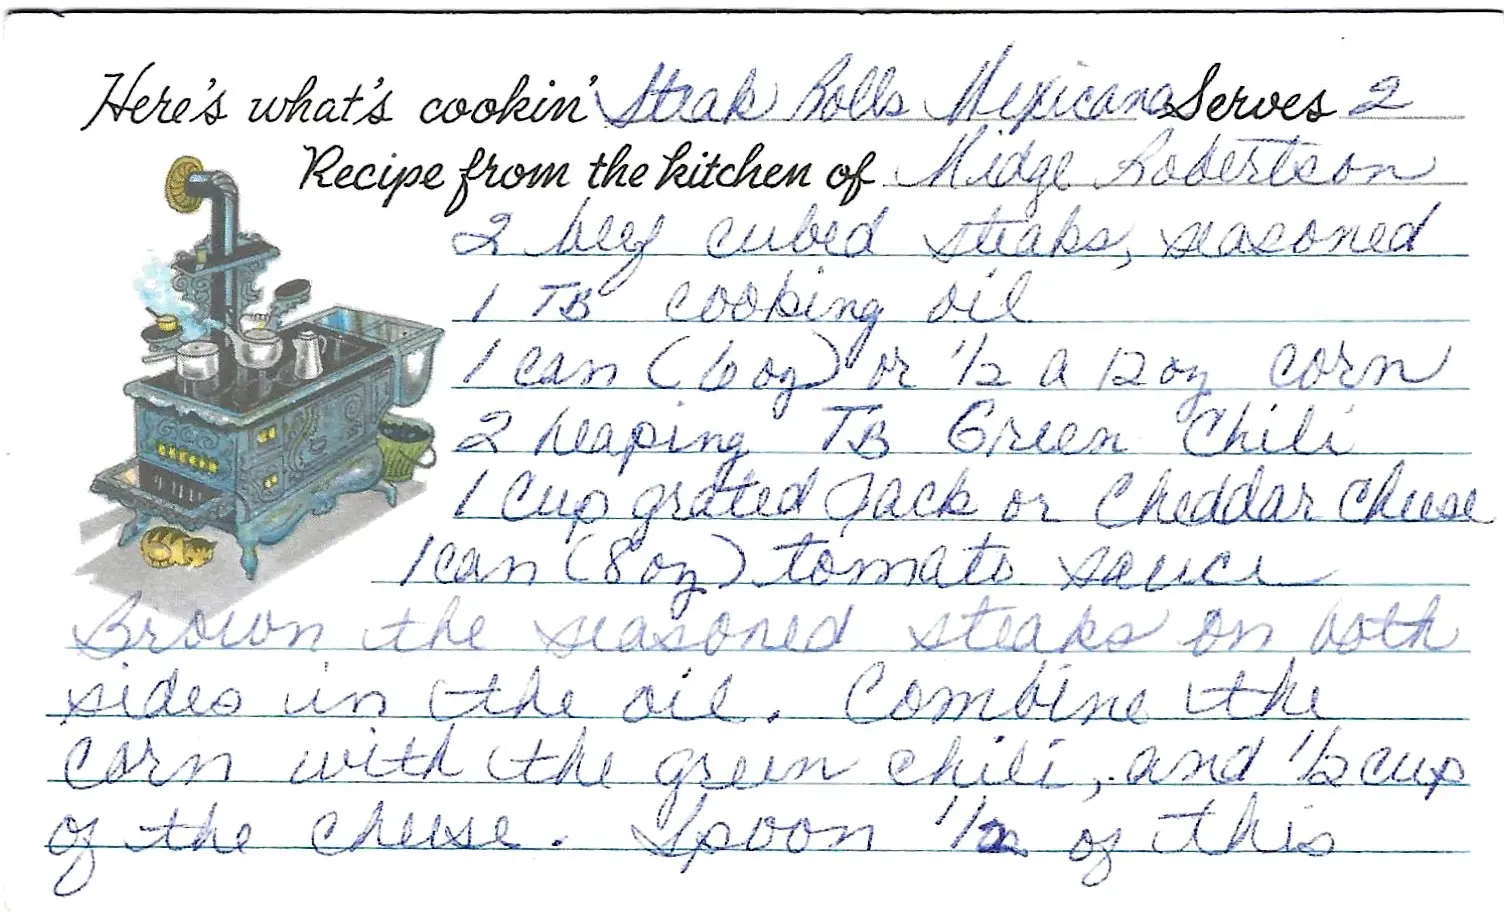 Here's what's cookin' Steak Rolls Mexicana Serves 2
Recipe from the kitchen of Midge Robertson
2 beef cubed steaks, seasoned
1 TB cooking oil
1 can (6 oz) or 1/2 a 12 oz corn
2 heaping TB Green Chili
1 Cup grated Jack or Cheddar Cheese
1 can (8 oz) tomato sauce
Brown the seasoned steaks on both
sides in the oil. Combine the
corn with the green chili, and 1/2 cup
of the cheese. Spoon 1/2 of this